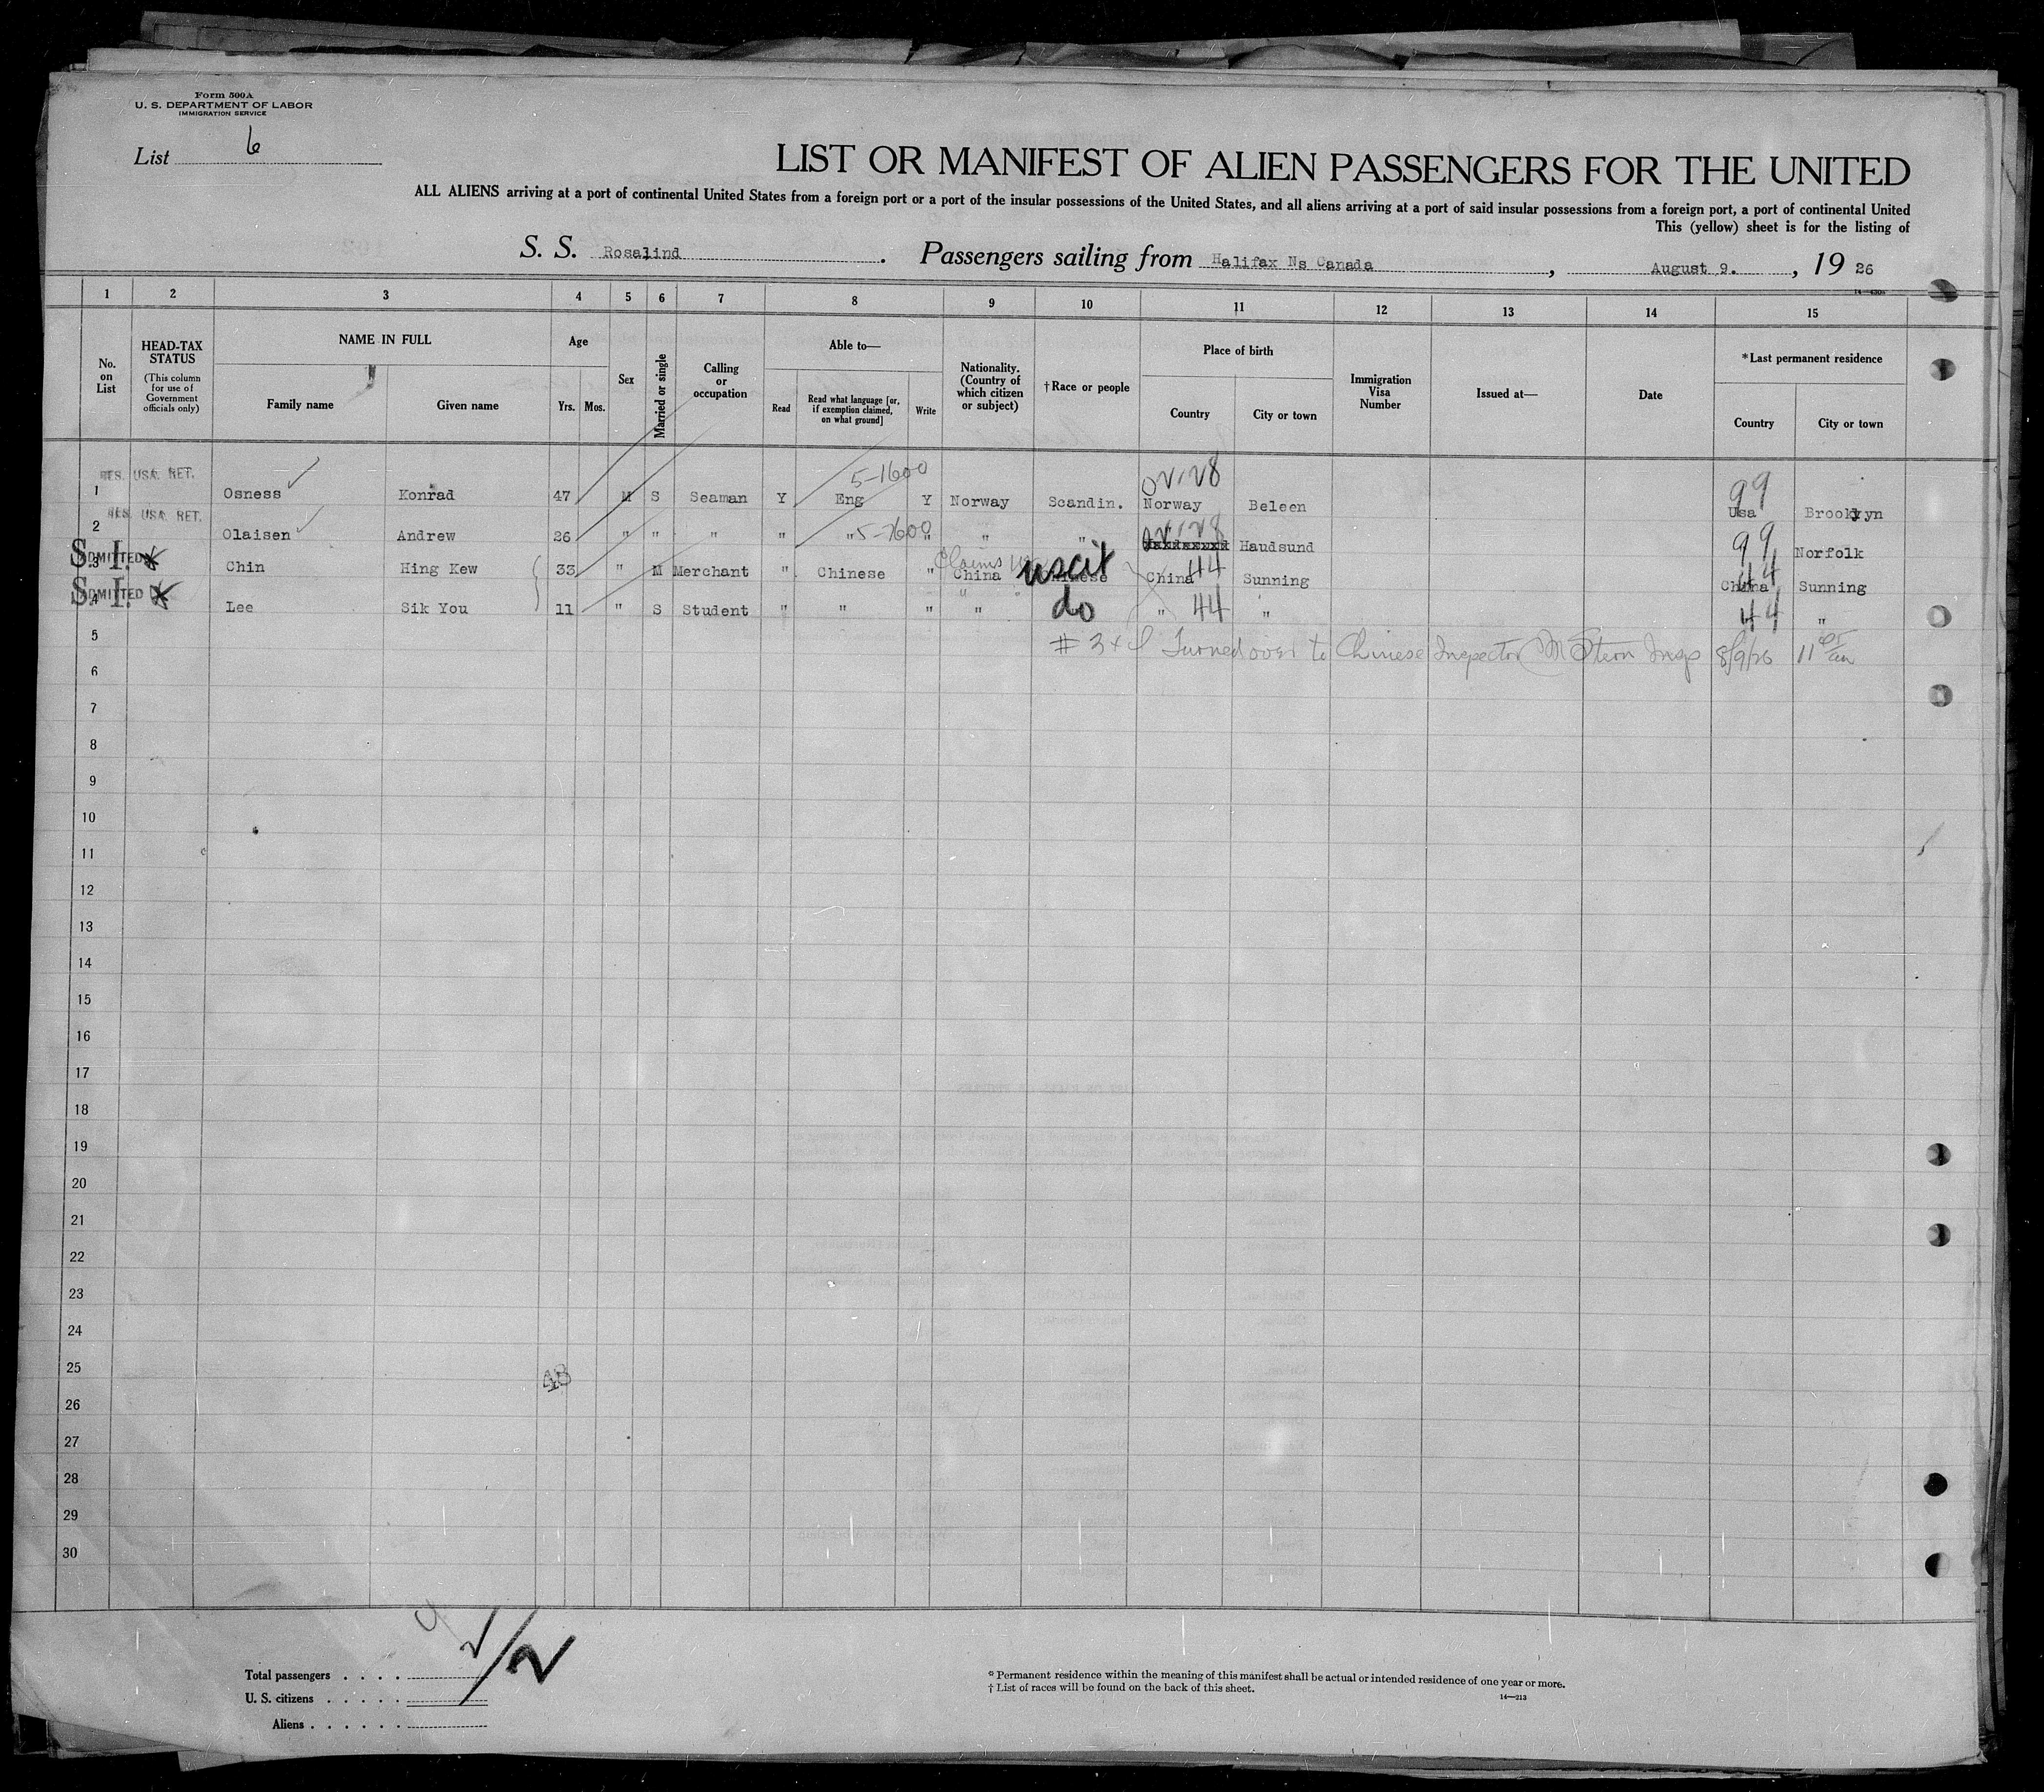 Form 500A
U. S. DEPARTMENT OF LABOR
IMMIGRATION SERVICE
List 6
LIST OR MANIFEST OF ALIEN PASSENGERS FOR THE UNITED
ALL ALIENS arriving at a port of continental United States from a foreign port or a port of the insular possessions of the United States, and all aliens arriving at a port of said insular possessions from a foreign port, a port of continental United
This (yellow) sheet is for the listing of
S. S. Rosalind. Passengers sailing from Halifax Ns Canada, August 9., 19 26
1 2 3 4 5 6 7 8 9 10 11 12 13 14 15
No. on List
HEAD-TAX STATUS
(This column for use of Government officials only)
NAME IN FULL
Family name Given name
Age
Yrs. Mos.
Sex
Married or single
Calling or occupation
Able to—
Read
Read what language [or, if exemption claimed, on what ground]
Write
Nationality. (Country of which citizen or subject)
† Race or people
Place of birth
Country City or town
Immigration Visa Number
Issued at—
Date
* Last permanent residence
Country City or town
RES. USA. RET. 5-1600 99
1 Osness Konrad 47 M S Seaman Y Eng Y Norway Scandin. Norway Beleen Usa Brooklyn
RES. USA. RET.
2 Olaisen Andrew 26 " " " " " 5-1600 " " " Haudsund 99 Norfolk
S. I. ADMITTED Claims
3 Chin Hing Kew 33 " M Merchant " Chinese " China uscit Chinese China 44 Sunning China 44 Sunning
S. I. ADMITTED
4 Lee Sik You 11 " S Student " " " " do " 44 " 44 "
5 # 3 + 4 Turned over to Chinese Inspector M Stern Insp 8/9/26 11 am
6
7
8
9
10
11
12
13
14
15
16
17
18
19
20
21
22
23
24
25 48
26
27
28
29
30
Total passengers
U. S. citizens
Aliens
2/2
* Permanent residence within the meaning of this manifest shall be actual or intended residence of one year or more.
† List of races will be found on the back of this sheet.
14—213